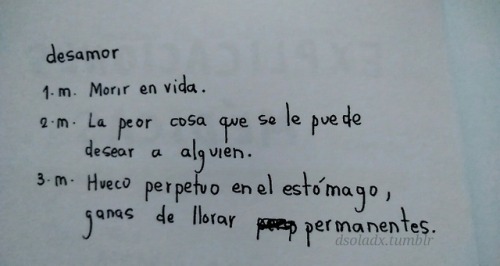 desamor
1. m. Morir en vida.
2. m. La peor cosa que se le puede
desear a alguien.
3. m. Hueco perpetuo en el estómago,
ganas de llorar permanentes.
dsoladx.tumblr